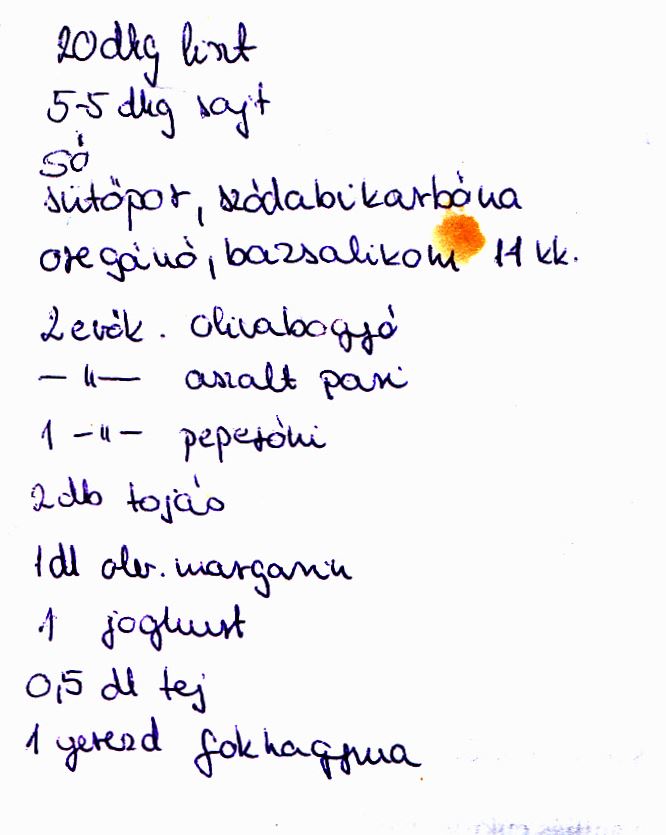 20 dkg liszt
5-5 dkg sajt
Só
sütőpor, szódabikarbóna
oregánó, bazsalikom 1-1 kk.
2 evők. olivabogyó
— " — aszalt pari
1 — " — peperóni
2 db tojás
1 dl olv. margarin
1 joghurt
0,5 dl tej
1 gerezd fokhagyma